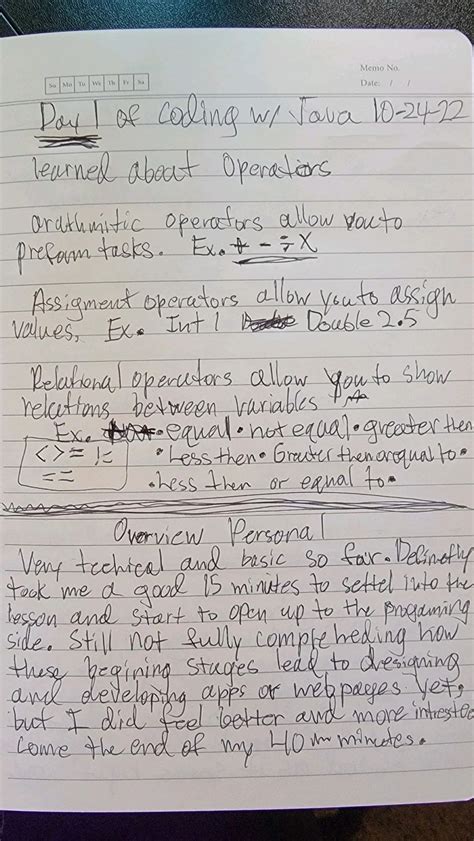 Memo No.
Su Mo Tu We Th Fr Sa
Date: / /
Day 1 of coding w/ Java 10-24-22
learned about Operations
arathmitic operators allow you to
preform tasks. Ex. + - ÷ X
Assigment operators allow you to assign
values, Ex. Int 1 Double 2.5
Relational operators allow you to show
relations between variables
Ex. • equal • not equal • greater then
< > = != • Less then • Greater then or equal to •
== • Less then or equal to •
Overview Personal
Very techical and basic so far. Definetly
took me a good 15 minutes to settel into the
lesson and start to open up to the programing
side. Still not fully compleheding how
these begining stages lead to designing
and developing apps or web pages yet,
but I did feel better and more intrested
come the end of my 40 minutes.